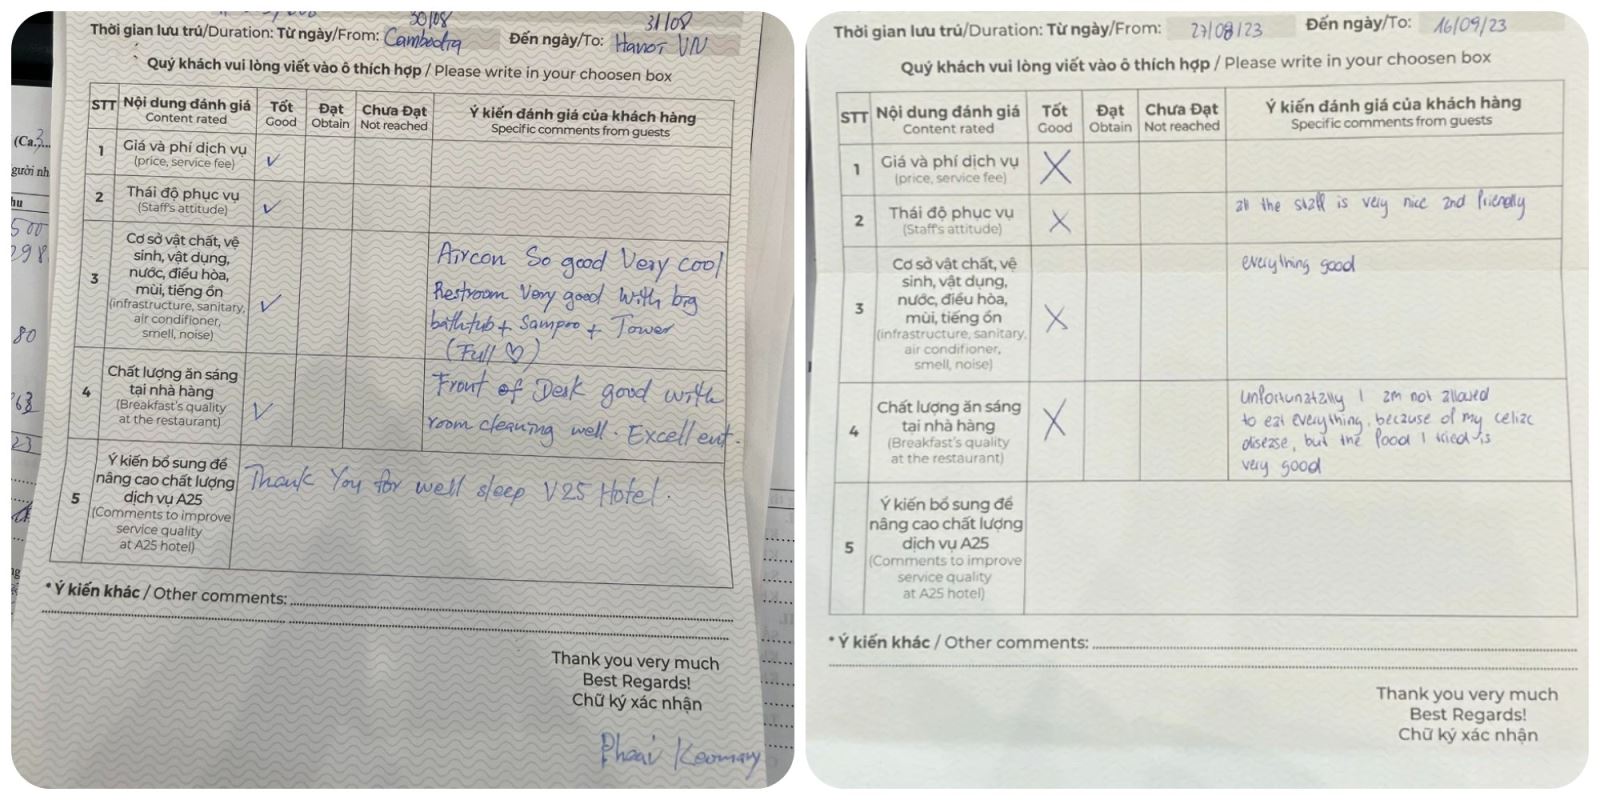 30/08
31/08
Thời gian lưu trú/Duration: Từ ngày/From: Cambodia Đến ngày/To: Hanoi VN
Quý khách vui lòng viết vào ô thích hợp / Please write in your choosen box
STT
Nội dung đánh giá
Content rated
Tốt
Good
Đạt
Obtain
Chưa Đạt
Not reached
Ý kiến đánh giá của khách hàng
Specific comments from guests
1
Giá và phí dịch vụ
(price, service fee)
✓
2
Thái độ phục vụ
(Staff's attitude)
✓
3
Cơ sở vật chất, vệ
sinh, vật dụng,
nước, điều hòa,
mùi, tiếng ồn
(infrastructure, sanitary,
air condifioner,
smell, noise)
✓
Aircon So good Very cool
Restroom Very good with big
bathtub + Sampoo + Tower
(Full ♡)
4
Chất lượng ăn sáng
tại nhà hàng
(Breakfast's quality
at the restaurant)
✓
Front of Desk good with
room cleaning well. Excellent.
5
Ý kiến bổ sung để
nâng cao chất lượng
dịch vụ A25
(Comments to improve
service quality
at A25 hotel)
Thank You for well sleep V25 Hotel.
* Ý kiến khác / Other comments:
Thank you very much
Best Regards!
Chữ ký xác nhận
(Ca.3
gười nh
500
298
80
63
23
Thời gian lưu trú/Duration: Từ ngày/From: 27/08/23 Đến ngày/To: 16/09/23
Quý khách vui lòng viết vào ô thích hợp / Please write in your choosen box
STT
Nội dung đánh giá
Content rated
Tốt
Good
Đạt
Obtain
Chưa Đạt
Not reached
Ý kiến đánh giá của khách hàng
Specific comments from guests
1
Giá và phí dịch vụ
(price, service fee)
X
2
Thái độ phục vụ
(Staff's attitude)
X
all the staff is very nice and friendly
3
Cơ sở vật chất, vệ
sinh, vật dụng,
nước, điều hòa,
mùi, tiếng ồn
(infrastructure, sanitary,
air condifioner,
smell, noise)
X
everything good
4
Chất lượng ăn sáng
tại nhà hàng
(Breakfast's quality
at the restaurant)
X
Unfortunatally I am not allowed
to eat everything. because of my celiac
disease, but the food I tried is
very good
5
Ý kiến bổ sung để
nâng cao chất lượng
dịch vụ A25
(Comments to improve
service quality
at A25 hotel)
* Ý kiến khác / Other comments:
Thank you very much
Best Regards!
Chữ ký xác nhận